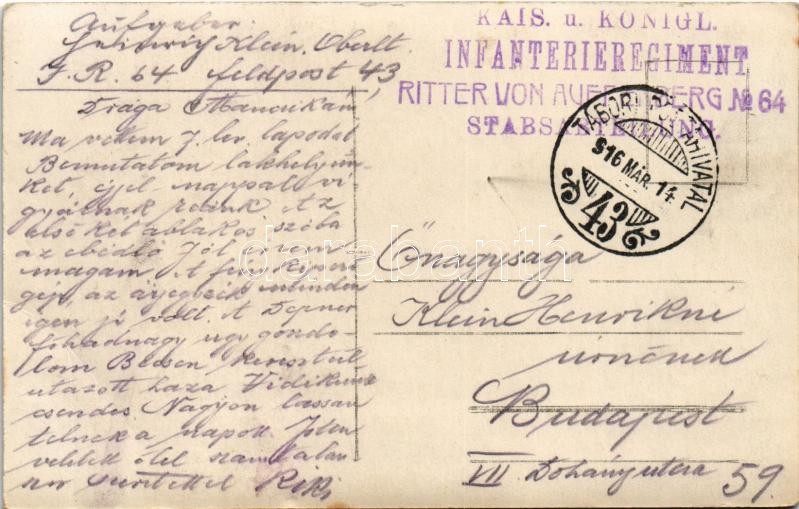 Aufgeber:
Heinrich Klein, Oberlt.
I. R. 64 feldpost 43
KAIS. u. KÖNIGL.
INFANTERIEREGIMENT
RITTER VON AUFFENBERG № 64
STABSABTEILUNG.
TÁBORI POSTAHIVATAL
916 MÁR. 14.
43
Drága Mancikám!
Ma vettem 7. lev. lapodat
Bemutatom lakhelyün-
ket, éjjel-nappal vi-
gyáznak reánk. Az
első két ablakos szoba
az ebédlő. Jól érzem
magam. A
gép, az minden
igen jó volt. A
főhadnagy ugy gondo-
lom Bécsen keresztül
utazott haza. Vidékünk
csendes. Nagyon lassan
telnek a napok. Isten
veletek ölel számtalan-
szor szeretettel Riki
Őnagysága
Klein Henrikné
úrnőnek
Budapest
VII Dohány utca 59.
darabanth